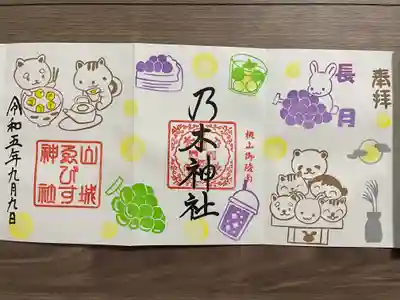 奉拝
長月
桃山御陵前
乃木神社
山城
ゑびす
神社
令和五年九月九日